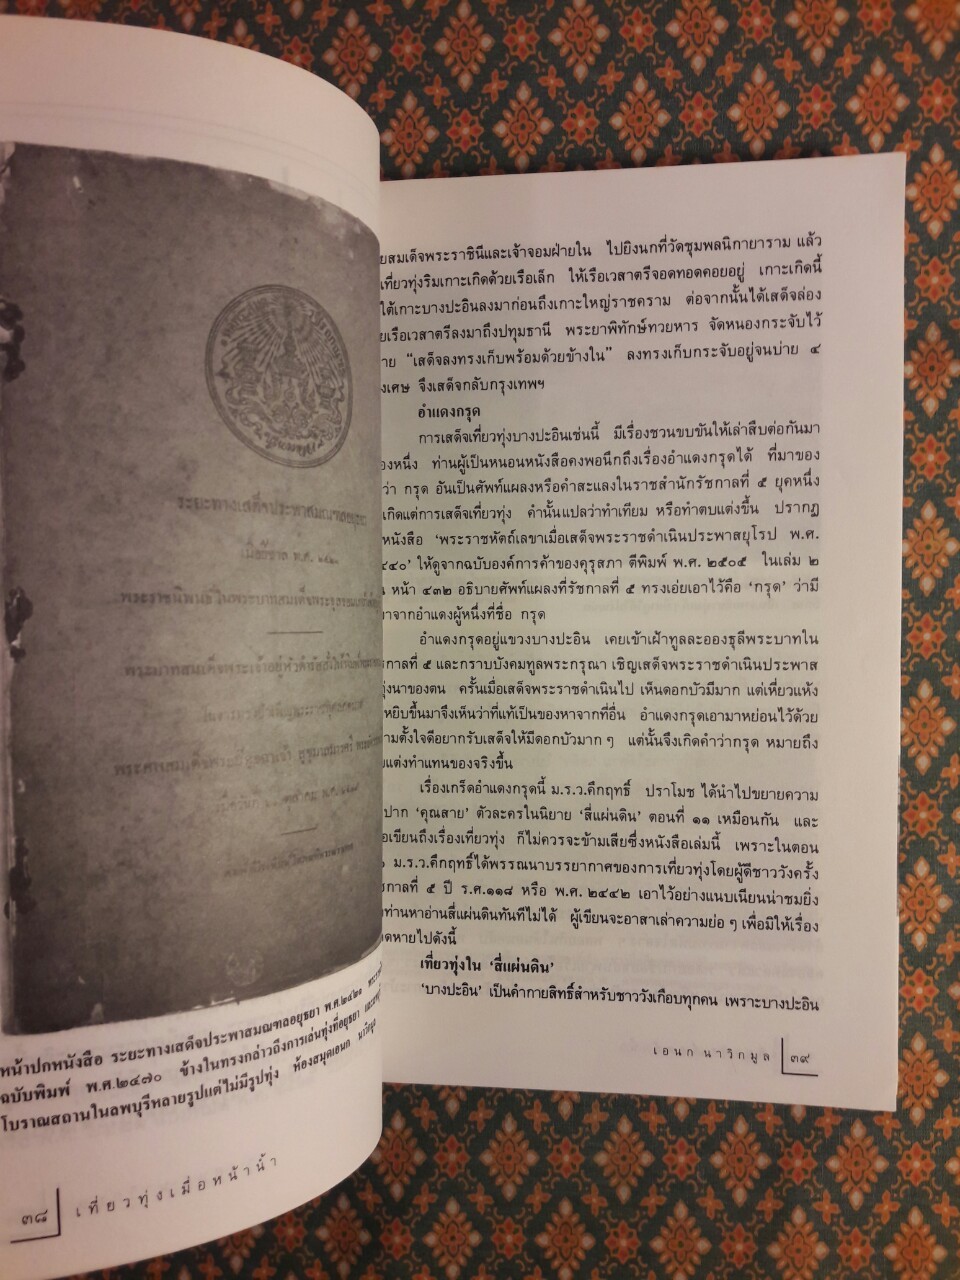 ระยะทางเสด็จประพาสมณฑล
หน้าปกหนังสือ ระยะทางเสด็จประพาสมณฑลอยุธยา พ.ศ.๒๔๒๑
ฉบับพิมพ์ พ.ศ.๒๔๗๐ ข้างในทรงกล่าวถึงการเล่นทุ่งที่อยุธยา
โบราณสถานในลพบุรีหลายรูปแต่ไม่มีรูปทุ่ง ห้องสมุดเอนก นาวิกมูล
๓๘ เที่ยวทุ่งเมื่อหน้าน้ำ
ยสมเด็จพระราชินีและเจ้าจอมฝ่ายใน ไปยิงนกที่วัดชุมพลนิกายาราม แล้ว
เที่ยวทุ่งริมเกาะเกิดด้วยเรือเล็ก ให้เรือเวสาตรีจอดทอดคอยอยู่ เกาะเกิดนี้
ใต้เกาะบางปะอินลงมาก่อนถึงเกาะใหญ่ราชคราม ต่อจากนั้นได้เสด็จล่อง
ยเรือเวสาตรีลงมาถึงปทุมธานี พระยาพิทักษ์ทวยหาร จัดหนองกระจับไว้
าย “เสด็จลงทรงเก็บพร้อมด้วยข้างใน” ลงทรงเก็บกระจับอยู่จนบ่าย ๔
งเศษ จึงเสด็จกลับกรุงเทพฯ
อำแดงกรุด
การเสด็จเที่ยวทุ่งบางปะอินเช่นนี้ มีเรื่องชวนขบขันให้เล่าสืบต่อกันมา
องหนึ่ง ท่านผู้เป็นหนอนหนังสือคงพอนึกถึงเรื่องอำแดงกรุดได้ ที่มาของ
ว่า กรุด อันเป็นศัพท์แผลงหรือคำสะแลงในราชสำนักรัชกาลที่ ๕ ยุคหนึ่ง
เกิดแต่การเสด็จเที่ยวทุ่ง คำนั้นแปลว่าทำเทียม หรือทำตบแต่งขึ้น ปรากฏ
หนังสือ ‘พระราชหัตถ์เลขาเมื่อเสด็จพระราชดำเนินประพาสยุโรป พ.ศ.
๔๔๐’ ให้ดูจากฉบับองค์การค้าของคุรุสภา ตีพิมพ์ พ.ศ. ๒๕๐๕ ในเล่ม ๒
น หน้า ๔๓๒ อธิบายศัพท์แผลงที่รัชกาลที่ ๕ ทรงเอ่ยเอาไว้คือ ‘กรุด’ ว่ามี
มาจากอำแดงผู้หนึ่งที่ชื่อ กรุด
อำแดงกรุดอยู่แขวงบางปะอิน เคยเข้าเฝ้าทูลละอองธุลีพระบาทใน
กาลที่ ๕ และกราบบังคมทูลพระกรุณา เชิญเสด็จพระราชดำเนินประพาส
ทุ่งนาของตน ครั้นเมื่อเสด็จพระราชดำเนินไป เห็นดอกบัวมีมาก แต่เหี่ยวแห้ง
หยิบขึ้นมาจึงเห็นว่าที่แท้เป็นของหาจากที่อื่น อำแดงกรุดเอามาหย่อนไว้ด้วย
ามตั้งใจดีอยากรับเสด็จให้มีดอกบัวมาก ๆ แต่นั้นจึงเกิดคำว่ากรุด หมายถึง
แต่งทำแทนของจริงขึ้น
เรื่องเกร็ดอำแดงกรุดนี้ ม.ร.ว.คึกฤทธิ์ ปราโมช ได้นำไปขยายความ
ปาก ‘คุณสาย’ ตัวละครในนิยาย ‘สี่แผ่นดิน’ ตอนที่ ๑๑ เหมือนกัน และ
อเขียนถึงเรื่องเที่ยวทุ่ง ก็ไม่ควรจะข้ามเสียซึ่งหนังสือเล่มนี้ เพราะในตอน
๑ ม.ร.ว.คึกฤทธิ์ได้พรรณนาบรรยากาศของการเที่ยวทุ่งโดยผู้ดีชาววังครั้ง
กาลที่ ๕ ปี ร.ศ.๑๑๘ หรือ พ.ศ. ๒๔๔๒ เอาไว้อย่างแนบเนียนน่าชมยิ่ง
ท่านหาอ่านสี่แผ่นดินทันทีไม่ได้ ผู้เขียนจะอาสาเล่าความย่อ ๆ เพื่อมิให้เรื่อง
ดหายไปดังนี้
เที่ยวทุ่งใน ‘สี่แผ่นดิน’
‘บางปะอิน’ เป็นคำกายสิทธิ์สำหรับชาววังเกือบทุกคน เพราะบางปะอิน
เอนก นาวิกมูล ๓๙